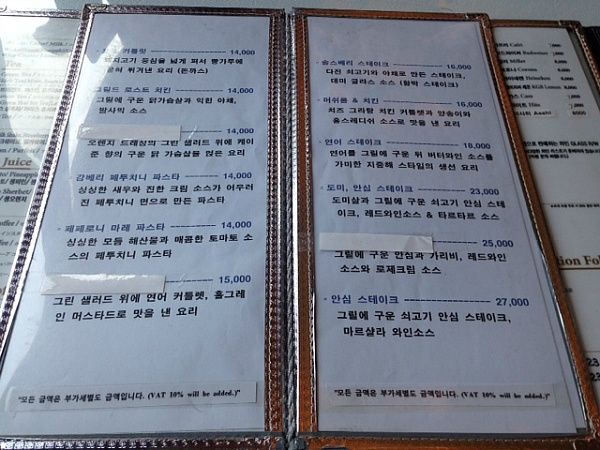 커틀릿 14,000
등심을 넓게 펴서 빵가루에
튀겨낸 요리 (돈까스)
그릴드 로스트 치킨 14,000
그릴에 구운 닭가슴살과 익힌 야채,
발사믹 소스
14,000
오렌지 드레싱의 그린 샐러드 위에 케이
준 향의 구운 닭 가슴살을 얹은 요리
감베리 페투치니 파스타 14,000
싱싱한 새우와 진한 크림 소스가 어우러
진 페투치니 면으로 만든 파스타
페페로니 마레 파스타 14,000
싱싱한 모듬 해산물과 매콤한 토마토 소
스의 페투치니 파스타
15,000
그린 샐러드 위에 연어 커틀렛, 홀그레
인 머스타드로 맛을 낸 요리
"모든 금액은 부가세별도 금액입니다. (VAT 10% will be added.)"
솔스베리 스테이크 16,000
다진 쇠고기와 야채로 만든 스테이크,
데미 글라스 소스 (함박 스테이크)
머쉬룸 & 치킨 16,000
치즈 그라탕 치킨 커틀렛과 양송이와
우스레디쉬 소스로 맛을 낸 요리
연어 스테이크 18,000
연어를 그릴에 구운 뒤 버터와인 소스를
가미한 지중해 스타일의 생선 요리
도미, 안심 스테이크 23,000
도미살과 그릴에 구운 쇠고기 안심 스테이
크, 레드와인소스 & 타르타르 소스
25,000
그릴에 구운 안심과 가리비, 레드와인
소스와 로제크림 소스
안심 스테이크 27,000
그릴에 구운 쇠고기 안심 스테이크,
마르살라 와인소스
"모든 금액은 부가세별도 금액입니다. (VAT 10% will be added.)"
Juice
Cafri
Budweiser
Miller
Corona
Heineken
KGB Lemon
Cass
Hite
Asahi